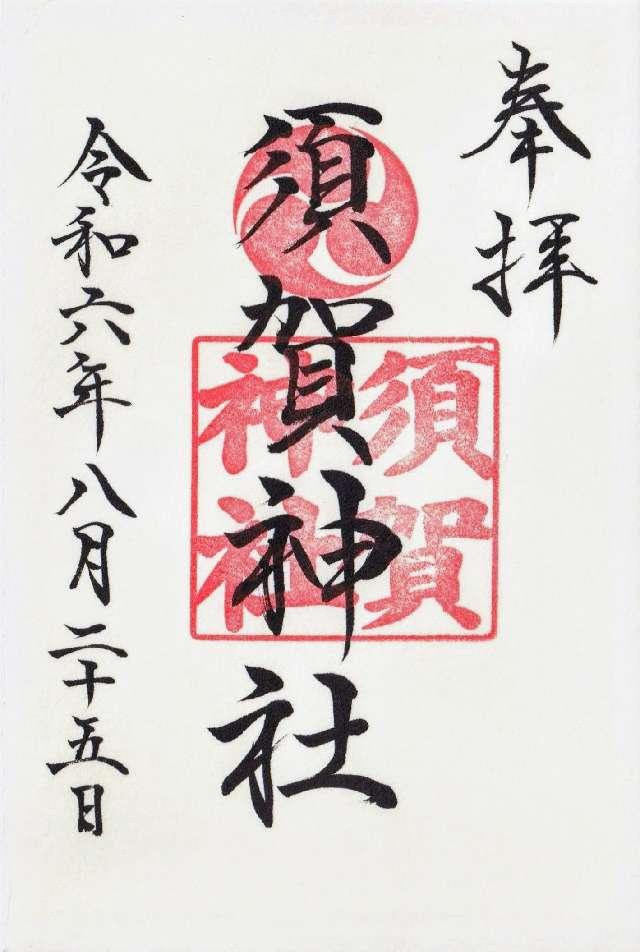 奉拝
須賀神社
須賀
神社
令和六年八月二十五日